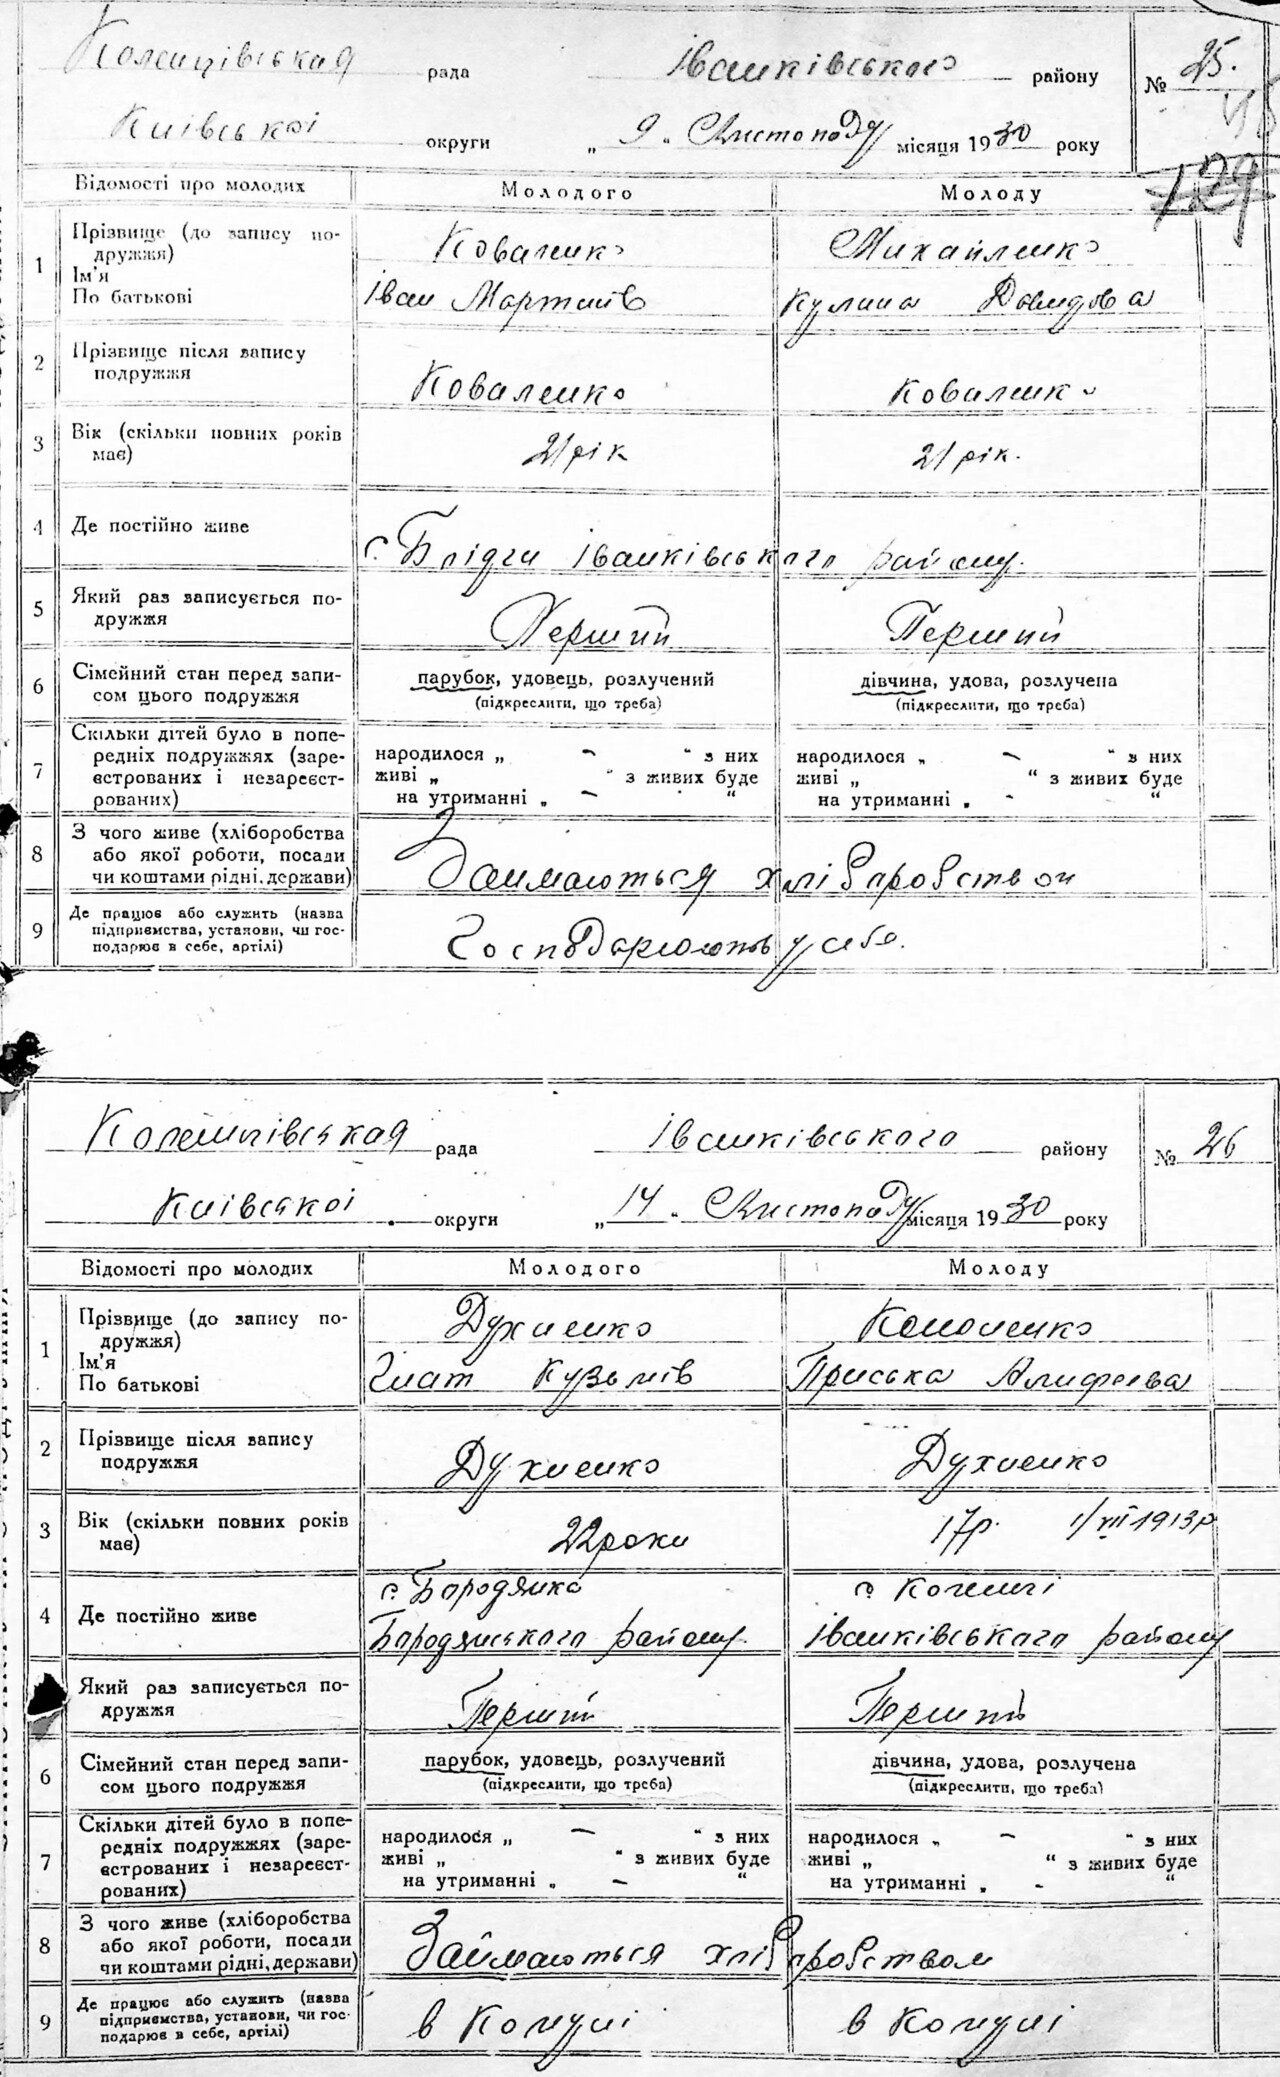 рада Іванківського району № 25.
Київської округи „ 9 “ Листопаду місяця 1930 року
129
Відомості про молодих Молодого Молоду
1 Прізвище (до запису по-
дружжя)
Ім'я
По батькові
Коваленко
Іван Мартинів
Михайленко
Кулина Давидова
2 Прізвище після запису
подружжя
Коваленко Коваленко
3 Вік (скільки повних років
має)
21 рік 21 рік.
4 Де постійно живе
с. Блідги Іванківського району.
5 Який раз записується по-
дружжя
Перший Перший
6 Сімейний стан перед запи-
сом цього подружжя
парубок, удовець, розлучений
(підкреслити, що треба)
дівчина, удова, розлучена
(підкреслити, що треба)
7 Скільки дітей було в попе-
редніх подружжях (заре-
єстрованих і незареєст-
рованих)
народилося „ — “ з них
живі „ “ з живих буде
на утриманні „ — “
народилося „ — “ з них
живі „ “ з живих буде
на утриманні „ - “
8 З чого живе (хліборобства
або якої роботи, посади
чи коштами рідні, держави)
Займаються хліборобством
9 Де працює або служить (назва
підприємства, установи, чи гос-
подарює в себе, артілі)
Господарюють у себе.
рада Іванківського району № 26
Київської округи „ 14 “ Листопаду місяця 1930 року
Відомості про молодих Молодого Молоду
1 Прізвище (до запису по-
дружжя)
Ім'я
По батькові
Духненко
Гнат Кузьмів
Кононенко
Приська
2 Прізвище після запису
подружжя
Духненко Духненко
3 Вік (скільки повних років
має)
22 роки 17р. 1/VII 1913р
4 Де постійно живе
с. Бородянка
Бородянського району
с.
Іванківського району
Який раз записується по-
дружжя
Перший Перший
6 Сімейний стан перед запи-
сом цього подружжя
парубок, удовець, розлучений
(підкреслити, що треба)
дівчина, удова, розлучена
(підкреслити, що треба)
7 Скільки дітей було в попе-
редніх подружжях (заре-
єстрованих і незареєст-
рованих)
народилося „ — “ з них
живі „ “ з живих буде
на утриманні „ — “
народилося „ — “ з них
живі „ “ з живих буде
на утриманні „ - “
8 З чого живе (хліборобства
або якої роботи, посади
чи коштами рідні, держави)
Займаються хліборобством
9 Де працює або служить (назва
підприємства, установи, чи гос-
подарює в себе, артілі)
в Комуні в Комуні